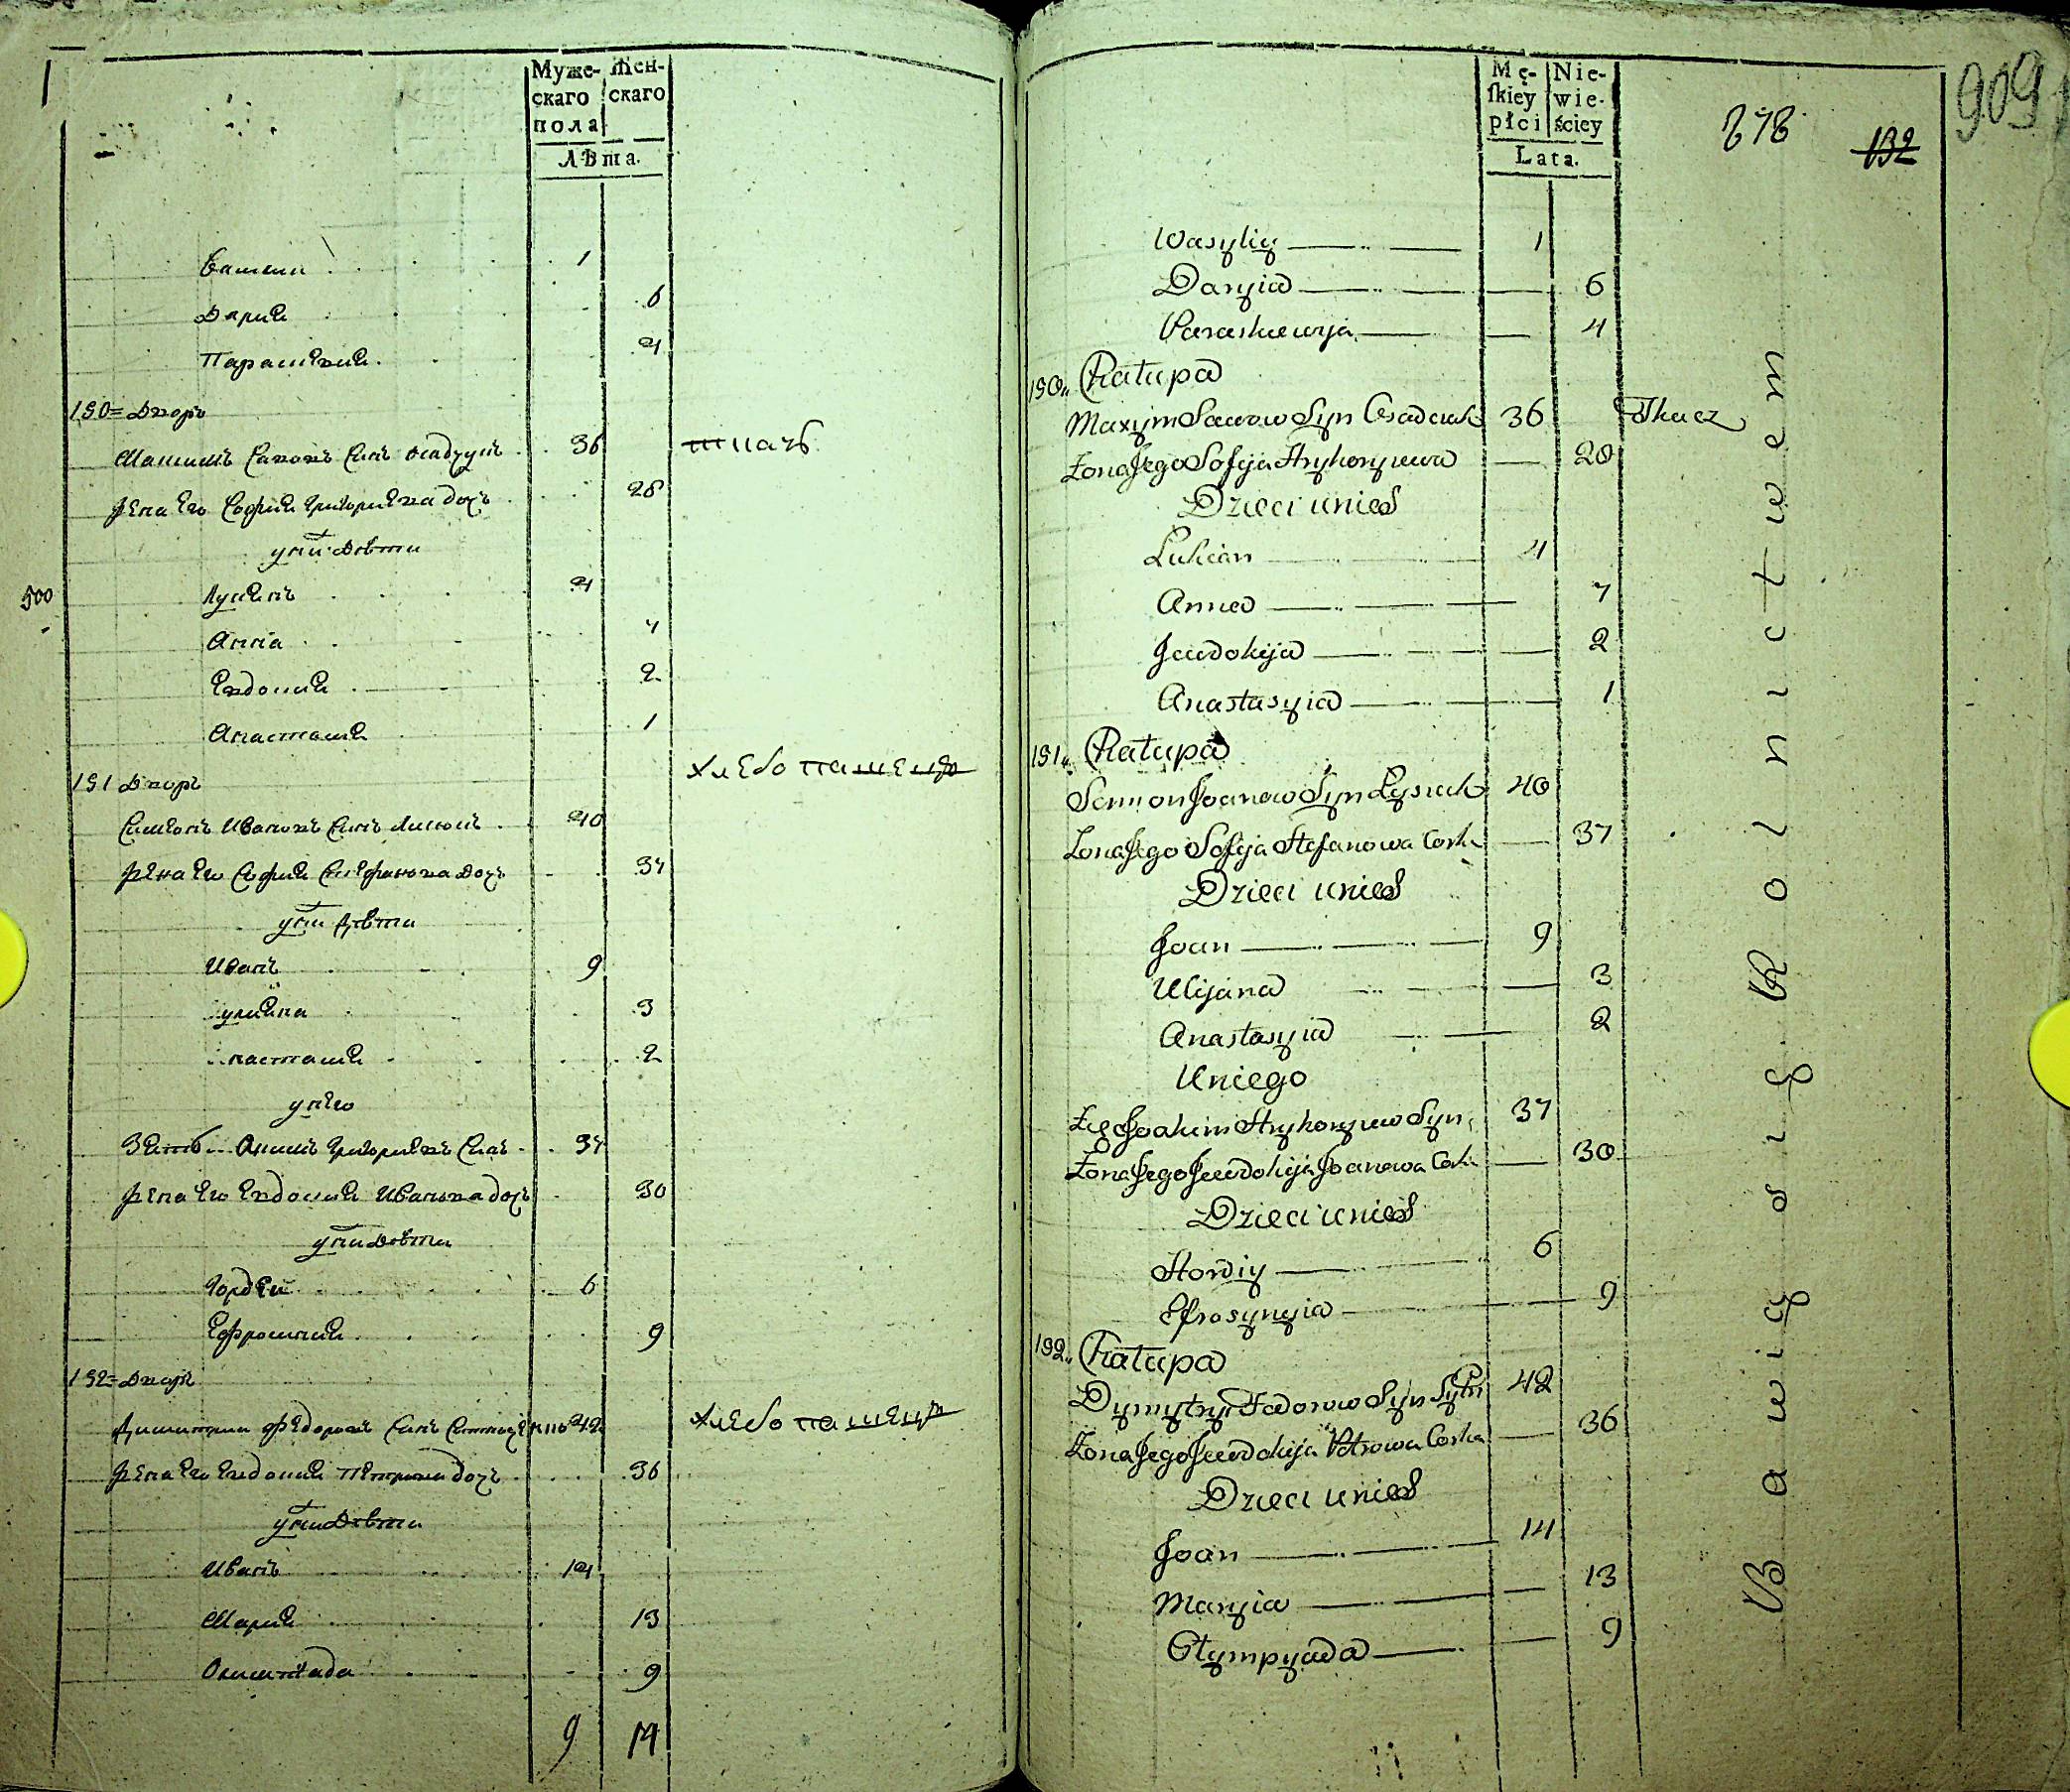 Муже-
скаго
пола
Жен-
скаго
Лѣта.
Василий 1
Дария 6
Параскевия. 4
190= Дворъ
Максимъ Савовъ Синъ Осадчукъ 36 ткачъ
Жена Его София Григориева дочъ 28
у них дѣти
500
Лукиянъ 4
Анна 7
Евдокия 2
Анастасия 1
191 Дворъ
хлебопашецъ
Симеонъ Ивановъ Синъ 40
Жена Его София Стефанова дочъ 37
у них дѣти
Иванъ 9
Улияна 3
настасия 2
у него
Зять Якимъ Григориевъ Синъ 37
Жена Его Евдокия Иванова дочъ 30
у них дѣти
Гордей 6
Ефросиния 9
192= Дворъ
Димитрий Федоровъ Синъ 42 хлебопашецъ
Жена Его Евдокия Петрова дочъ 36
у них дѣти
Иванъ 14
Мария 13
Олимпиада 9
9 14
Mę-
skiey
płci
Nie-
wie-
ściey
Lata.
878
132
909
Wasyliy 1
Daryia 6
Paraskiewyja 4
190. Chałupa
Maxym Sawow Syn Osadczuk 36 Tkacz
Żona Jego Sofija Hryhoryiewa 28
Dzieci u nich
Lukian 4
Anna 7
Jewdokija 2
Anastasyia 1
191. Chałupa
Semion Joanow Syn Łysiuk 40
Żona Jego Sofija Stefanowa Corka 37
Dzieci u nich
Joan 9
Ulijana 3
Anastasyia 2
U niego
Zięć Joakim Hryhoryiew Syn 37
Żona Jego Jewdokija Joanowa Corka 30
Dzieci u nich
Hordiy 6
Efrosynyia 9
192. Chałupa
Dymytryi Fedorow Syn 42
Żona Jego Jewdokija Petrowa Corka 36
Dzieci u nich
Joan 14
Maryia 13
Olympyada 9
Bawią się Rolnictwem